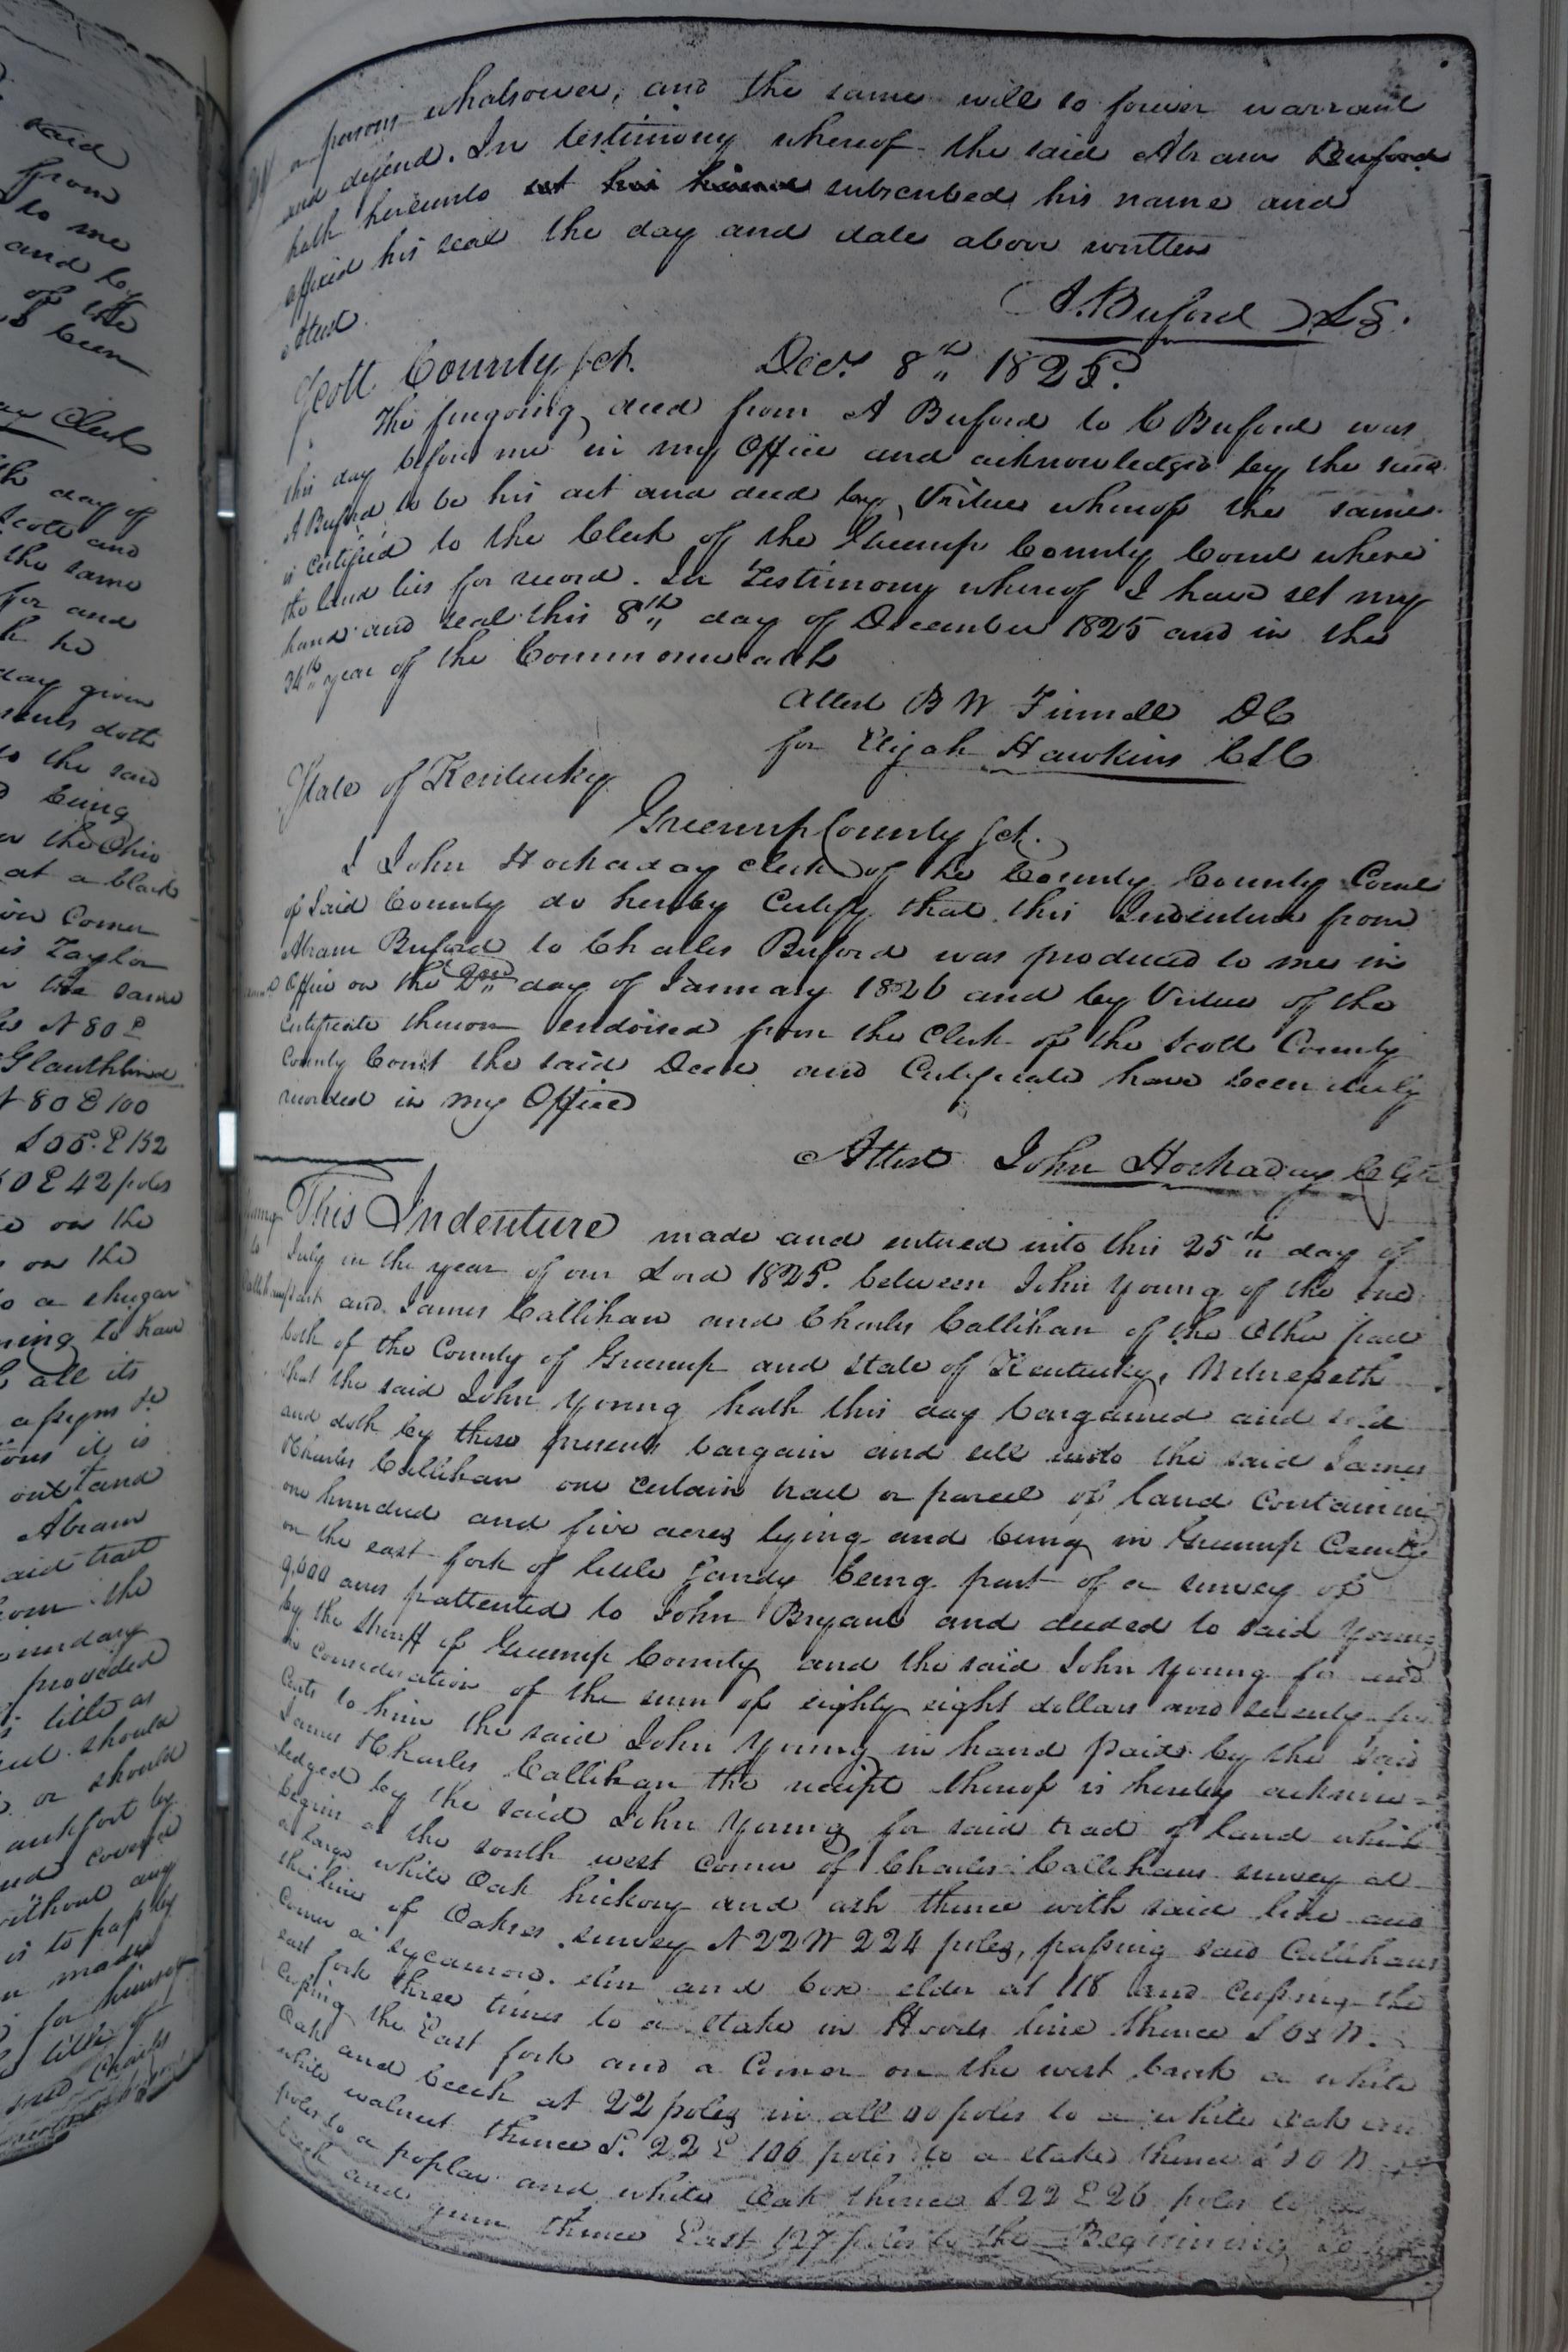 said
from
to me
and by
of the
been
Clerk
day of
Scott and
the same
for and
he
day given
doth
to the said
being
the Ohio
at a black
Corner
Taylor
the same
N 80 E
N 80 E 100
E 152
E 42 poles
on the
on the
to a shugar
to have
all its
assigns
it is
out and
Abram
said tract
from the
provided
title as
should
or should
by
without any
is to pass by
made
for himself
title of
or persons whatsoever, and the same will so forever warrant
and defend. In testimony whereof the said Abram Buford
hath hereunto set his hand subscribed his name and
affixed his seal the day and date above written
Attest
A. Buford LS.
Scott County sct. Decr. 8th 1825.
The foregoing deed from A Buford to C Buford was
this day before me in my Office and acknowledged by the said
A Buford to be his act and deed by Virtue whereof the same
is Certified to the Clerk of the Greenup County Court where
the land lies for record. In Testimony whereof I have set my
hand and seal this 8th day of December 1825 and in the
34th year of the Commonwealth
Attest B W Finnell DC
for Elijah Hawkins CSC
State of Kentucky
Greenup County sct.
I John Hockaday Clerk of the County County Court
of Said County do hereby Certify that this Indenture from
Abram Buford to Charles Buford was produced to me in
Office on the 2nd day of January 1826 and by Virtue of the
Certificate thereon endorsed from the Clerk of the Scott County
County Court the said Deed and Certificate have been duly
recorded in my Office
Attest John Hockaday
Young
to
This Indenture made and entered into this 25th day of
July in the year of our Lord 1825. between John Young of the one
part and James Callihan and Charles Callihan of the Other part
both of the County of Greenup and State of Kentucky, Witnesseth
that the said John Young hath this day bargained and sold
and doth by these presents bargain and sell unto the said James
& Charles Callihan one certain tract or parcel of land Containing
one hundred and five acres lying and being in Greenup County
on the east fork of little Sandy being part of a survey of
9,600 acres pattented to John Bryant and deeded to said Young
by the Sheriff of Greenup County and the said John Young for and
in consideration of the sum of eighty eight dollars and seventy five
Cents to him the said John Young in hand paid by the said
James & Charles Callihan the receipt thereof is hereby acknow=
ledged by the said John Young for said tract of land which
begin at the south west corner of Charles Callihans survey at
a large white Oak hickory and ash thence with said line and
the line of Oakses survey N 22 W 224 poles, passing said Callihans
Corner a sycamore. elm and box elder at 118 and crossing the
east fork three times to a stake in Hoods line thence S W.
crossing the East fork and a Corner on the west bank a white
Oak and beech at 22 poles in all poles to a white Oak and
white walnut thence S. 22 E 106 poles to a stake thence
poles to a poplar and white Oak thence S 22 E 26 poles to
beech and gum thence East 127 poles to the Beginning